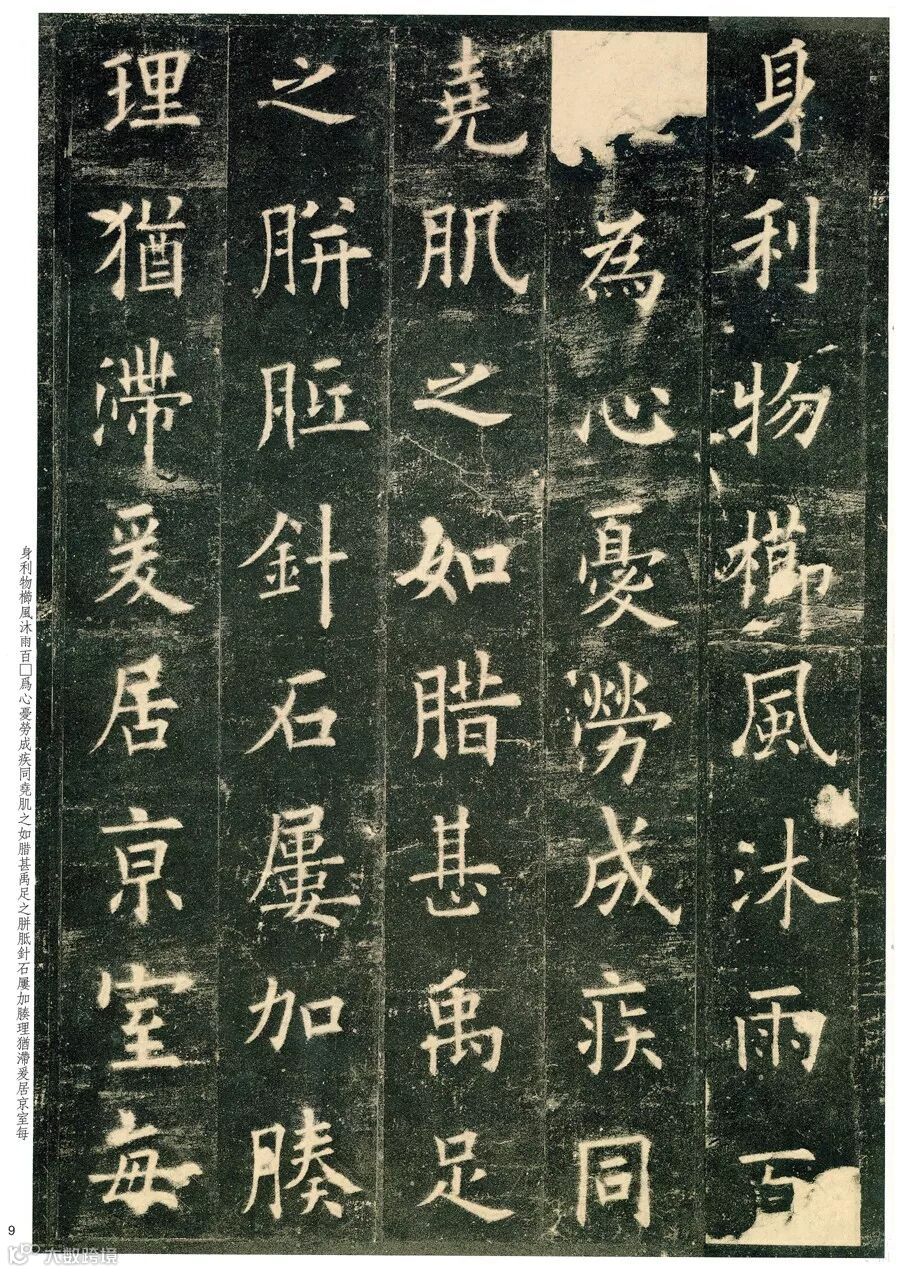 身利物櫛風沐雨百
為心憂勞成疾同
堯肌之如腊甚禹足
之胼胝針石屢加腠
理猶滯爰居京室每
身利物櫛風沐雨百□爲心憂勞成疾同堯肌之如腊甚禹足之胼胝針石屢加腠理猶滯爰居京室每
9
大数跨境